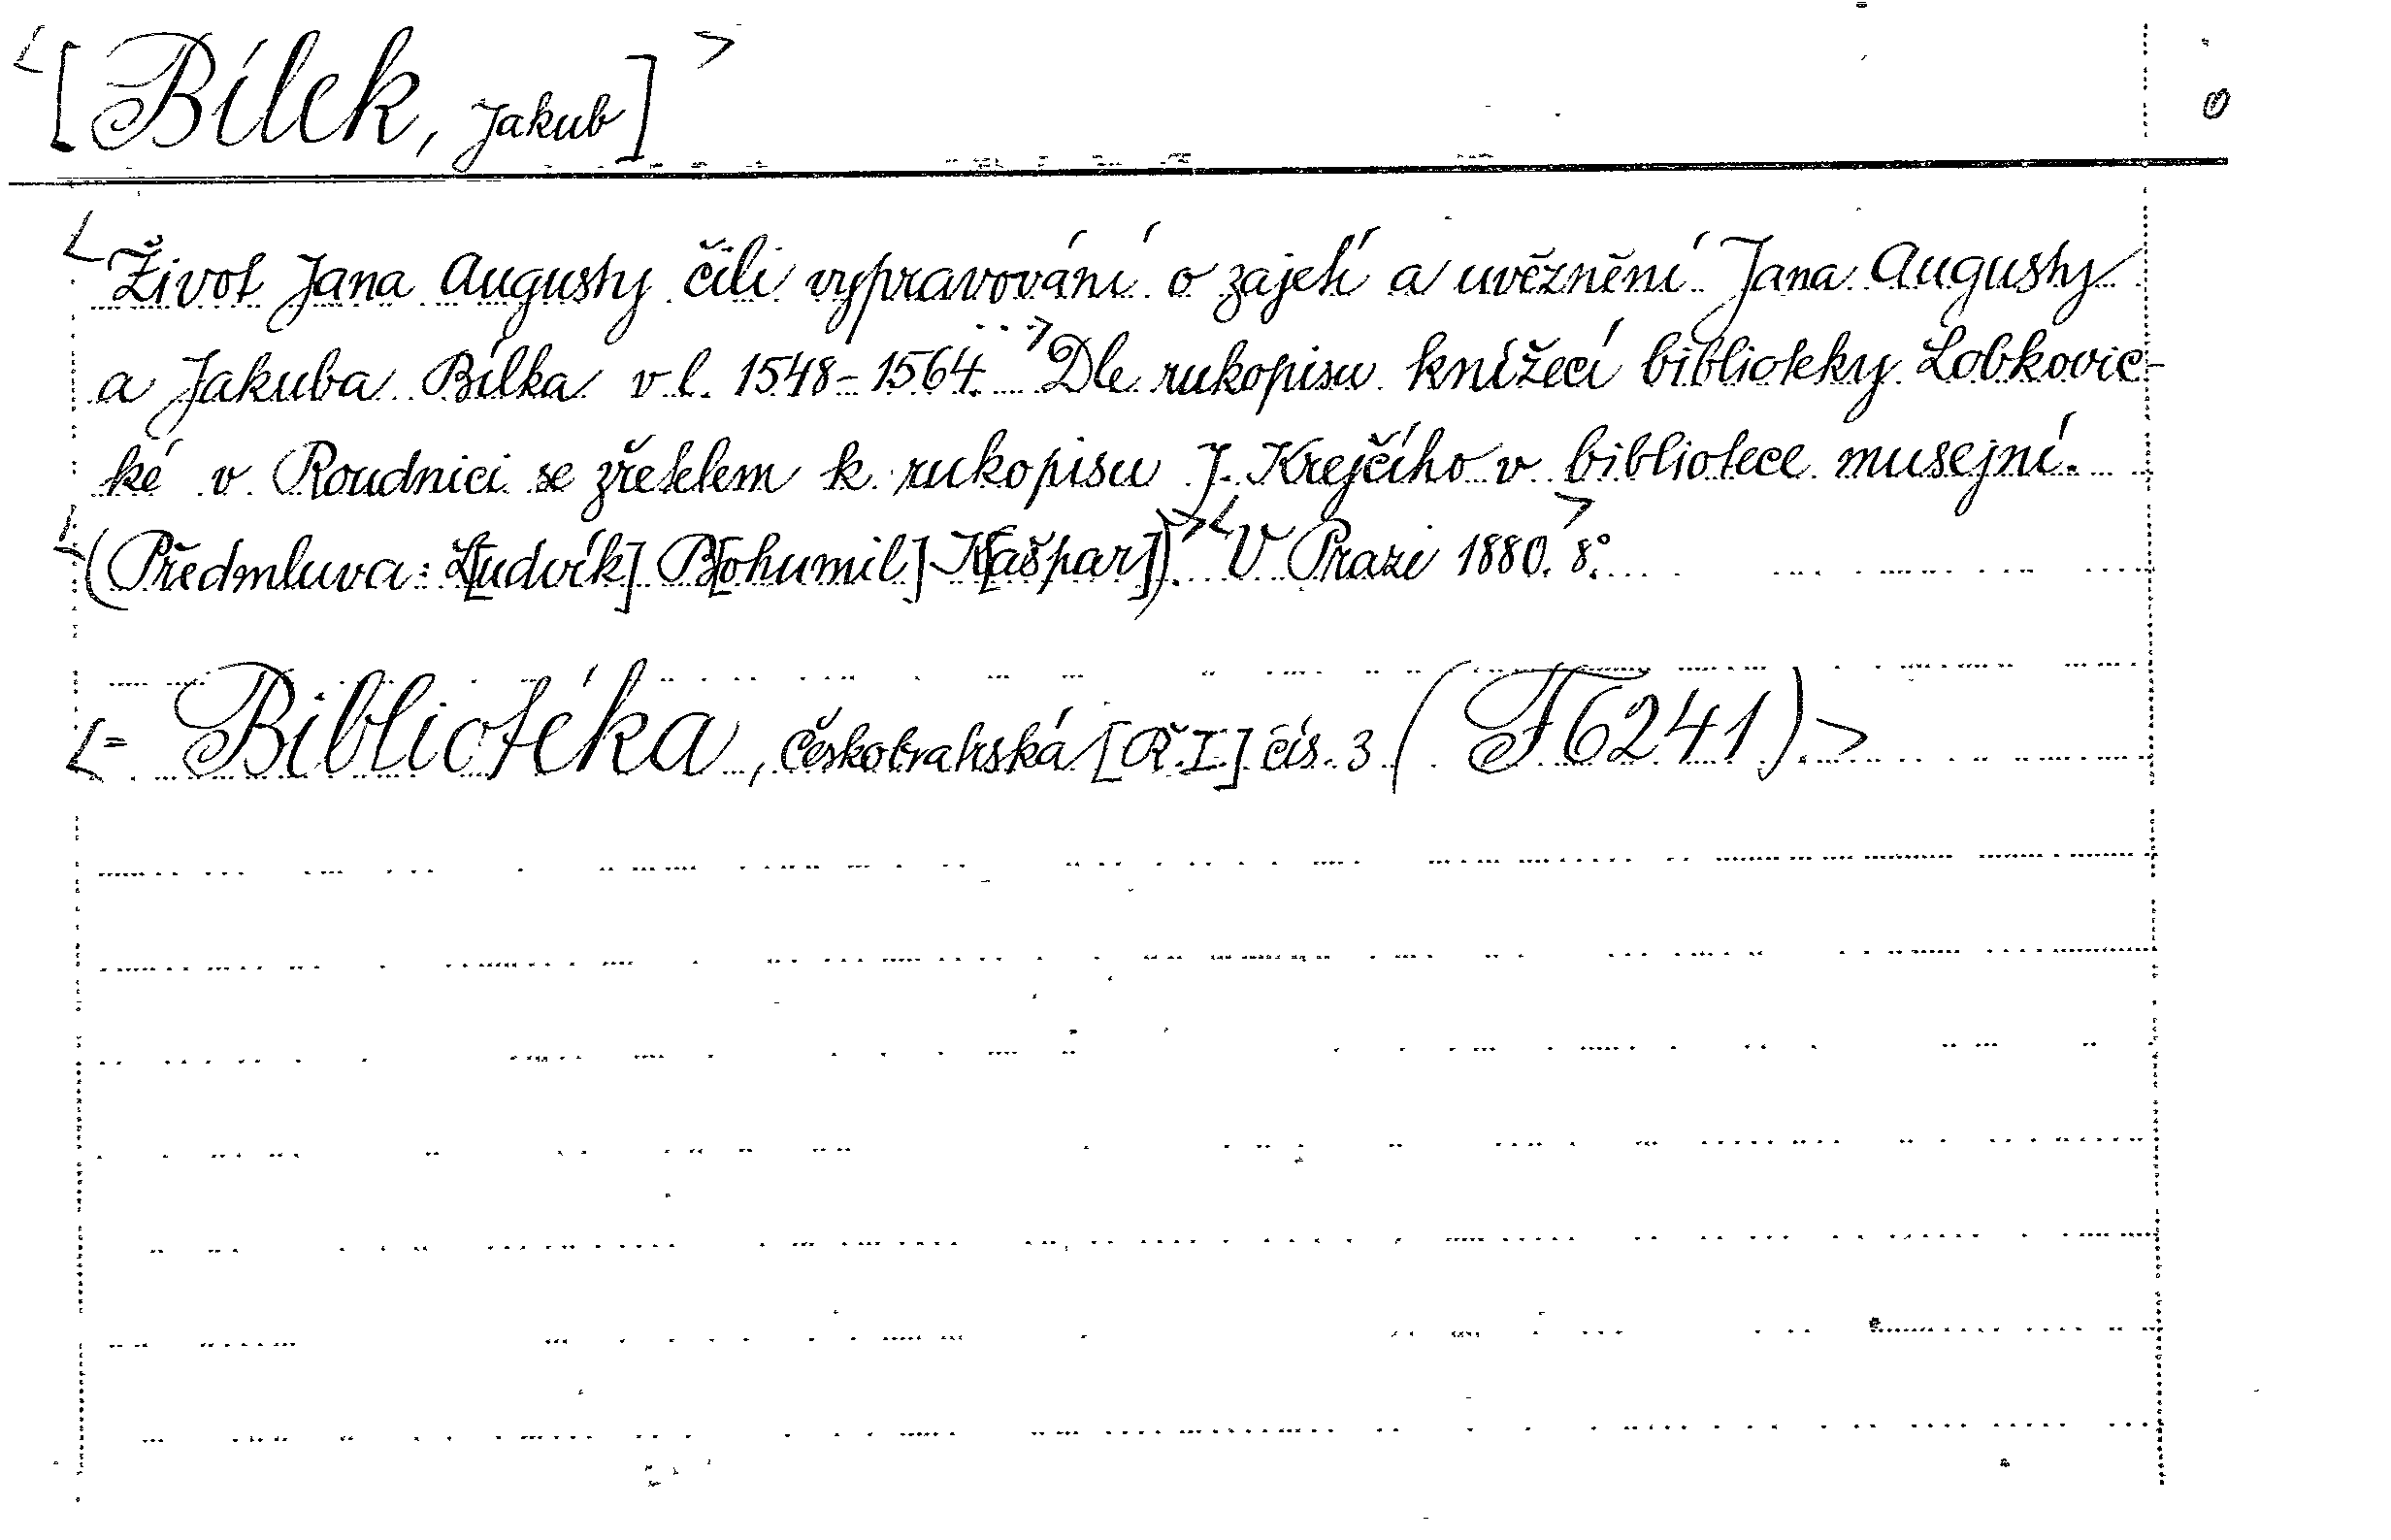 <[Bílek, Jakub]>
<Život Jana Augusty čili vypravování o zajetí a uvěznění Jana Augusty
a Jakuba Bílka v l. 1548-1564...> Dle rukopisu knížecí biblioteky Lobkovic-
ké v Roudnici se zřetelem k rukopisu J. Krejčího v bibliotece musejní.
<(Předmluva: L[udvík] B[ohumil] K[ašpar]).> <V Praze 1880.> 8°.
<= Bibliotéka, českobratrská [Ř.I.] čís. 3 (F6241).>